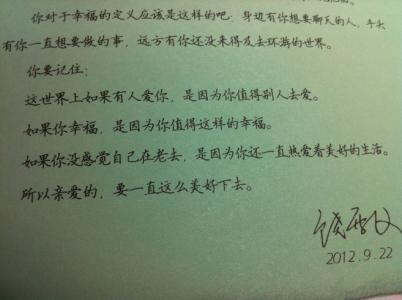 你对于幸福的定义应该是这样的吧：身边有你想要聊天的人，手头
有你一直想要做的事，远方有你还没来得及去环游的世界。
你要记住：
这世界上如果有人爱你，是因为你值得别人去爱。
如果你幸福，是因为你值得这样的幸福。
如果你没感觉自己在老去，是因为你还一直热爱着美好的生活。
所以亲爱的，要一直这么美好下去。
2012.9.22